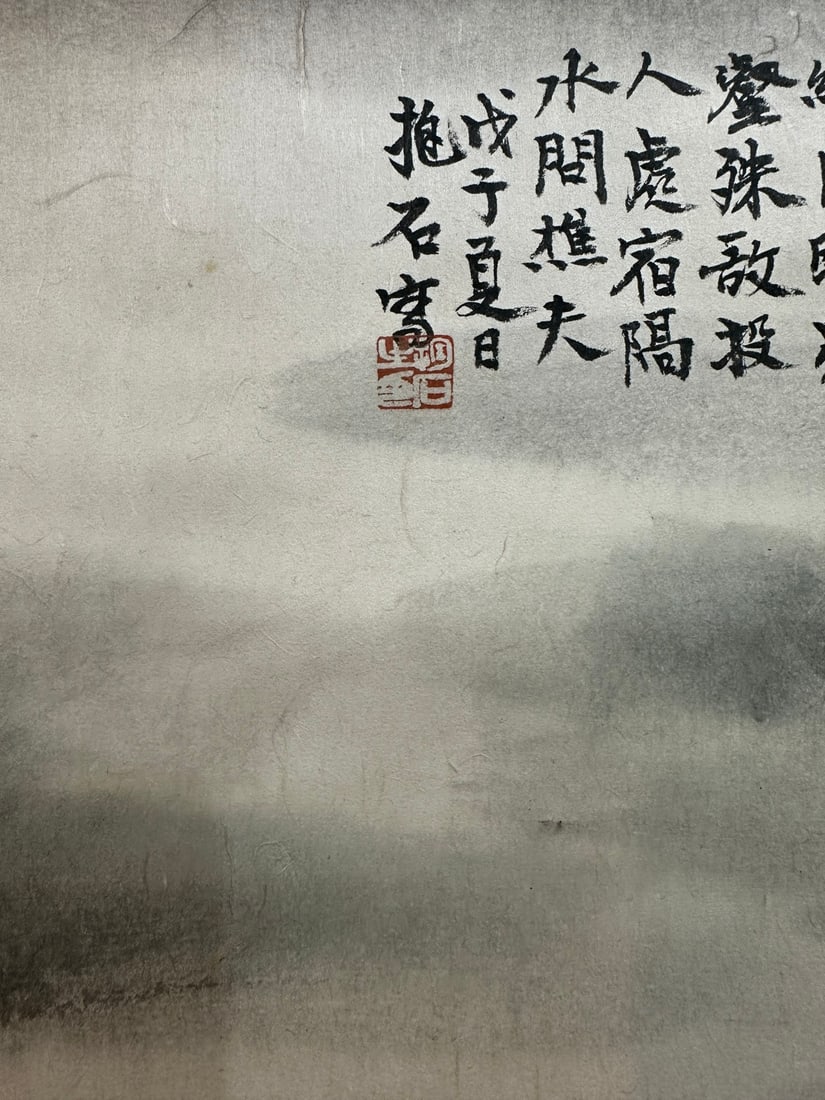 壑殊敌投
人處宿隔
水問樵夫
戊子夏日
抱石寫